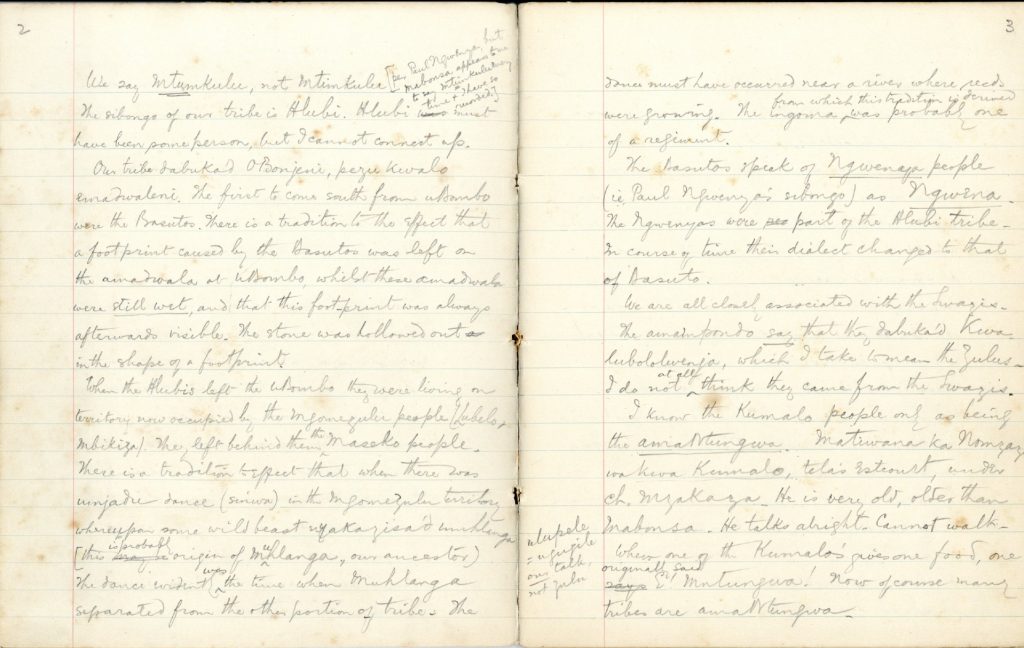 2
We say Mtumkulu, not Mtimkulu [per Paul Ngwenya, but
Mabonsa appears to me
to say Mtimkulu every
time & I have so
recorded]
The sibongo of our tribe is Hlubi. Hlubi must
have been some person, but I cannot connect up.
Our tribe dabuka'd O Bonjeni, pezu kwalo
emadwaleni. The first to come south from uBombo
were the Basutos. There is a tradition to the effect that
a footprint caused by the Basutos was left on
the amadwala at uBombo, whilst these amadwala
were still wet, and that this footprint was always
afterwards visible. The stone was hollowed out
in the shape of a footprint.
When the Hlubis left the uBombo they were living on
territory now occupied by the Mgomezulu people (Lubelo,
Mbikiza). They left behind them the Maseko people.
There is a tradition to effect that when there was
umjadu dance (sinwa) in the Mgomezulu territory
whereupon some wild beast nyakazisa'd umhlanga
[this is probably origin of Mhlanga, our ancestor)
The dance evident was the time when Muhlanga
separated from the other portion of tribe. The
3
dance must have occurred near a river where reeds
were growing. The ingoma from which this tradition is derived was probably one
of a regiment.
The Basutos speak of Ngwenya people
(ie. Paul Ngwenya's sibongo) as Ngwena.
The Ngwenyas were part of the Hlubi tribe.
In course of time their dialect changed to that
of Basuto.
We are all closely associated with the Swazis.
The amampondo say that they dabuka'd Kwa
lubololwenja, which I take to mean the Zulus.
I do not at all think they came from the Swazis.
I know the Kumalo people only as being
the amaNtungwa. Matiwana ka Nomgay
wa kwa Kumalo, tola's Estcourt, under
Ch. Mzakaza. He is very old, older than
Mabonsa. He talks alright. Cannot walk.
When one of the Kumalo's gives one food, one
originally said E! Mntungwa! Now of course many
tribes are amaNtungwa.
our talk,
not Zulu